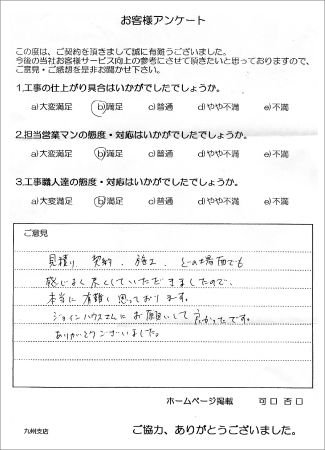 お客様アンケート
この度は、ご契約を頂きまして誠に有難うございました。
今後の当社お客様サービス向上の参考にさせて頂きたいと思っておりますので、
ご意見・ご感想を是非お聞かせ下さい。
1.工事の仕上がり具合はいかがでしたでしょうか。
a)大変満足 b)満足 c)普通 d)やや不満 e)不満
2.担当営業マンの態度・対応はいかがでしたでしょうか。
a)大変満足 b)満足 c)普通 d)やや不満 e)不満
3.工事職人達の態度・対応はいかがでしたでしょうか。
a)大変満足 b)満足 c)普通 d)やや不満 e)不満
ご意見
見積り、契約、施工、どの場面でも
感じよく尽くしていただきましたので、
本当に有難く思っております。
ジョインハウスさんにお願いして良かったです。
ありがとうございました。
ホームページ掲載 可□ 否□
九州支店
ご協力、ありがとうございました。